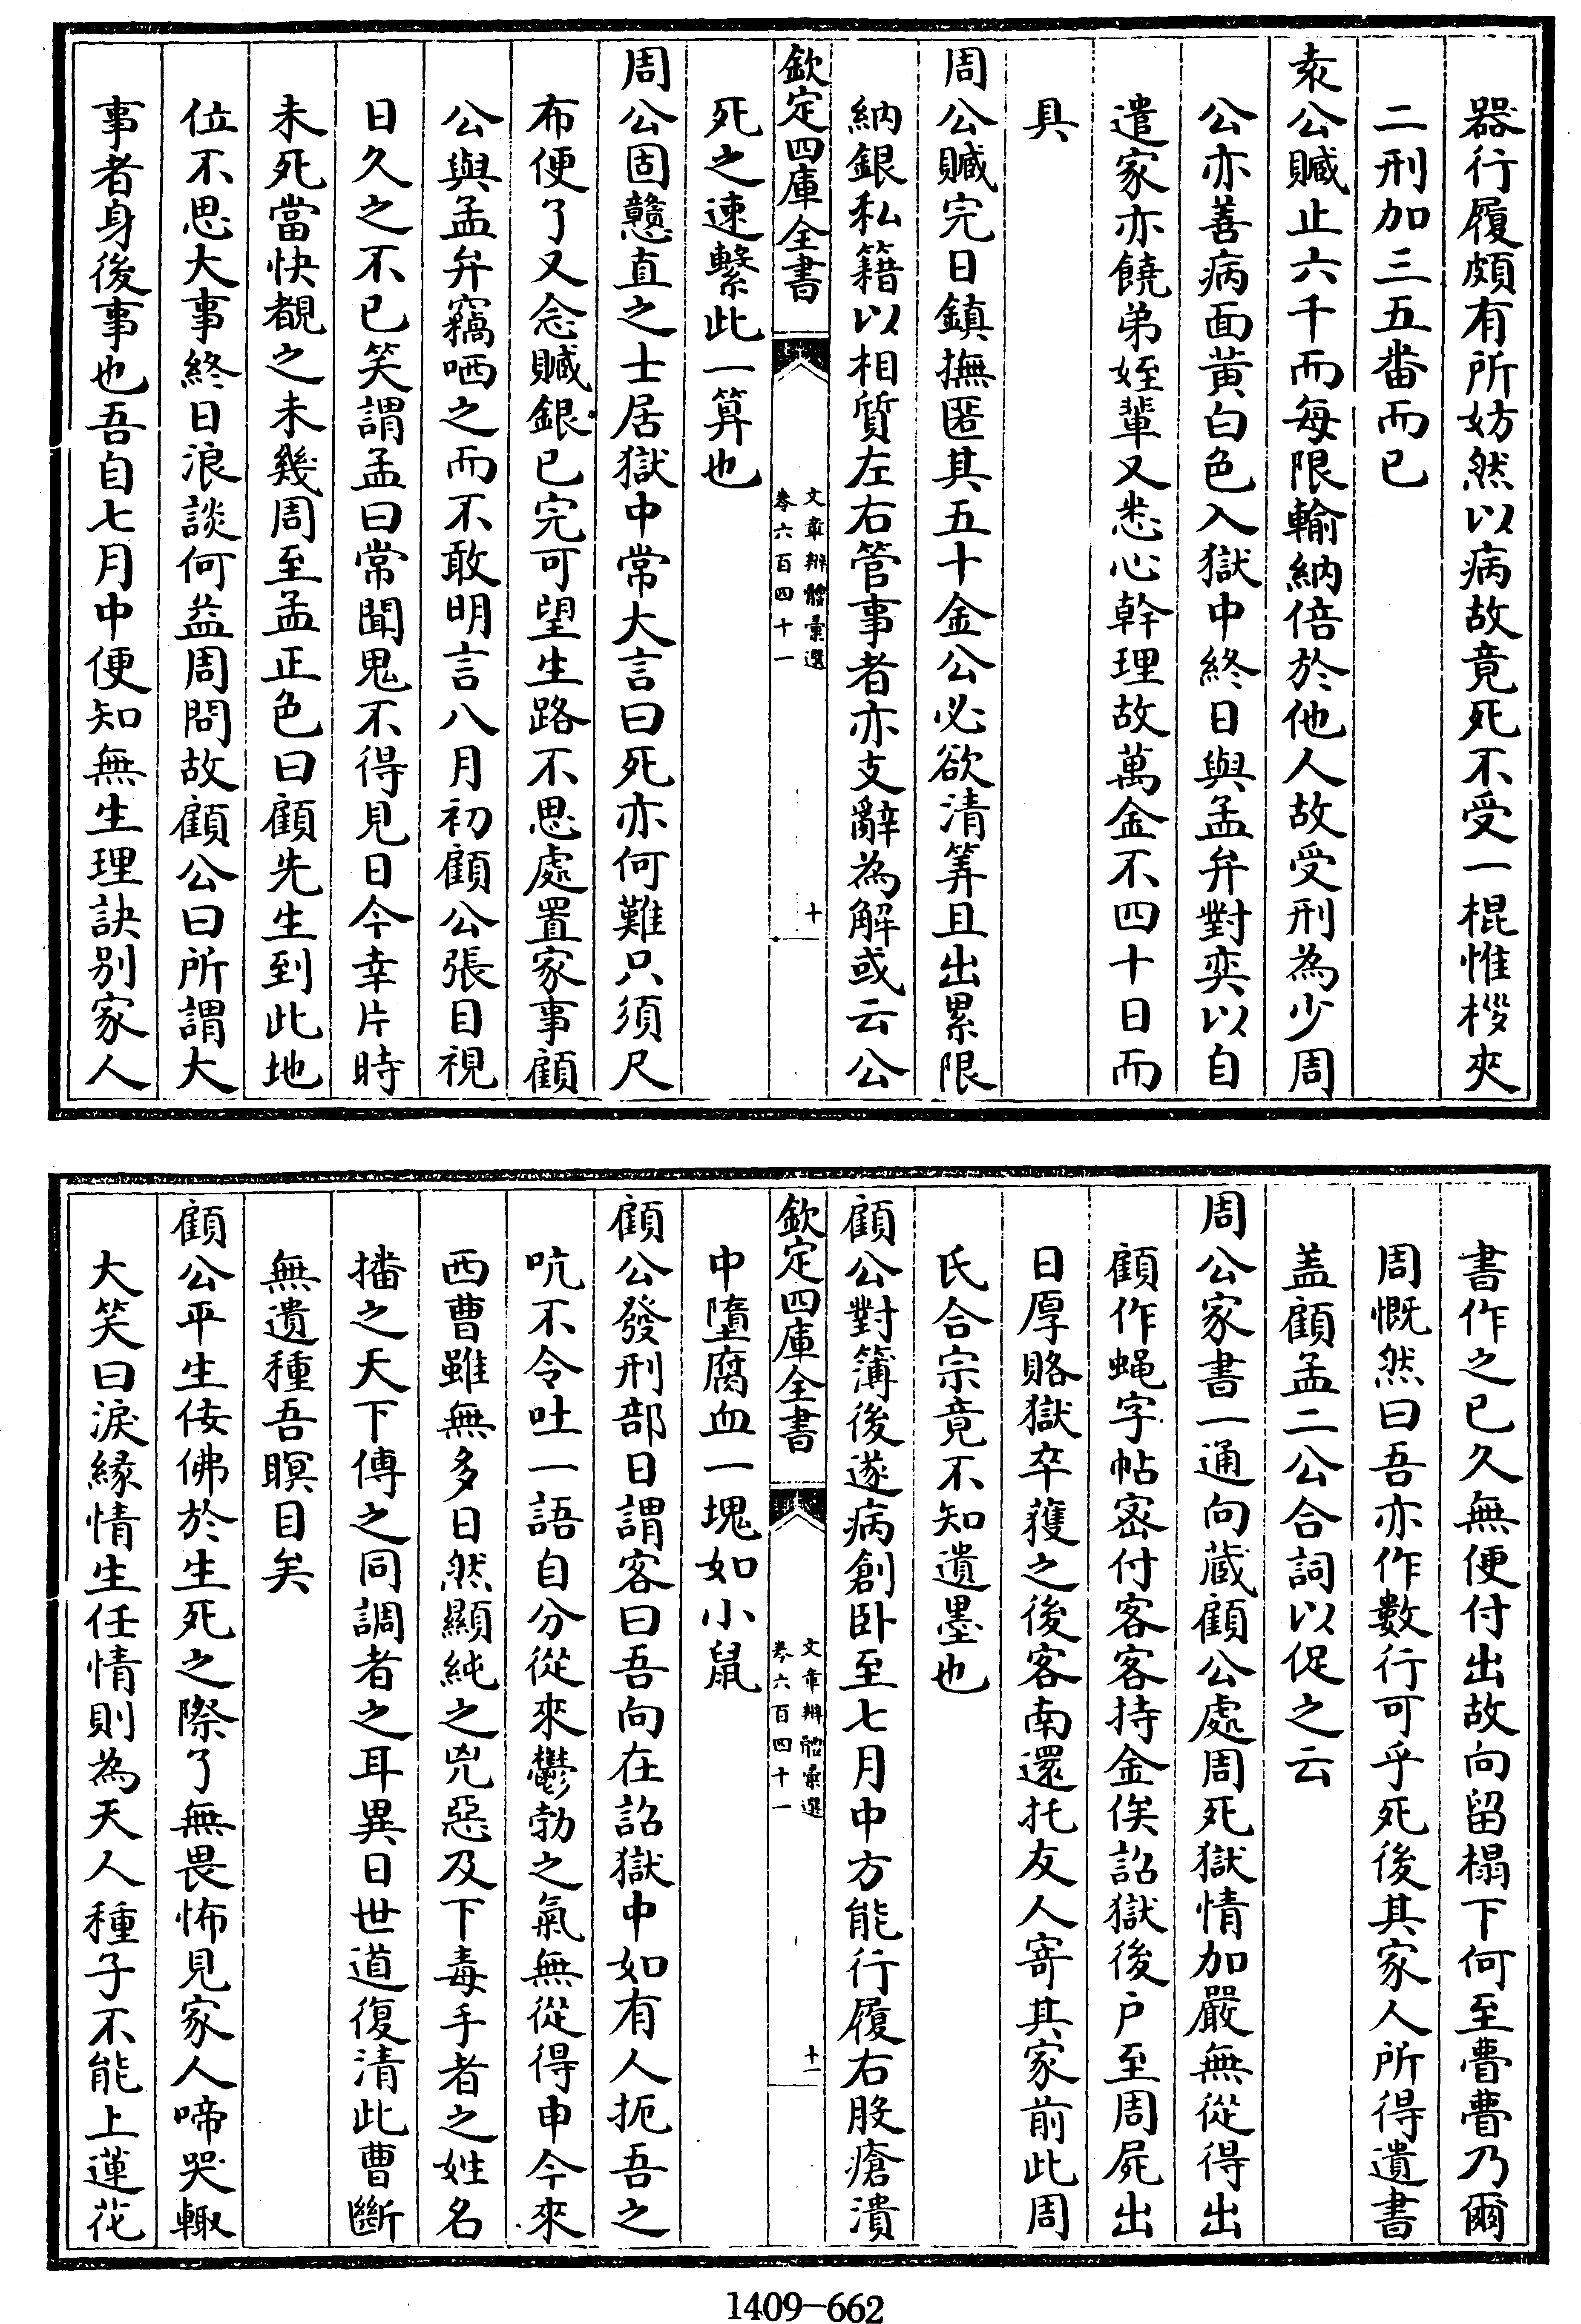 器行履頗有所妨然以病故竟死不受一棍惟桚夾
二刑加三五番而已
袁公贓止六千而每限輸納倍於他人故受刑為少周
公亦善病面黃白色入獄中終日與孟弁對奕以自
遣家亦饒弟姪輩又悉心幹理故萬金不四十日而
具
周公贓完日鎮撫匿其五十金公必欲清筭且出累限
納銀私籍以相質左右管事者亦支辭為解或云公
欽定四庫全書
文章辨體彙選
卷六百四十一
十
死之速繫此一算也
周公固戇直之士居獄中常大言曰死亦何難只須尺
布便了又念贓銀已完可望生路不思處置家事顧
公與孟弁竊哂之而不敢明言八月初顧公張目視
日久之不已笑謂孟曰常聞鬼不得見日今幸片時
未死當快覩之未幾周至孟正色曰顧先生到此地
位不思大事終日浪談何益周問故顧公曰所謂大
事者身後事也吾自七月中便知無生理訣别家人
書作之已久無便付出故向留榻下何至瞢瞢乃爾
周慨然曰吾亦作數行可乎死後其家人所得遺書
盖顧孟二公合詞以促之云
周公家書一通向蔵顧公處周死獄情加嚴無從得出
顧作蝇字帖宻付客客持金俟詔獄後户至周屍出
日厚賂獄卒獲之後客南還托友人寄其家前此周
氏合宗竟不知遺墨也
顧公對簿後遂病創卧至七月中方能行履右股瘡潰
欽定四庫全書
文章辨體彙選
卷六百四十一
十一
中墮腐血一塊如小鼠
顧公發刑部日謂客曰吾向在詔獄中如有人扼吾之
吭不令吐一語自分從來鬱勃之氣無從得申今來
西曹雖無多日然顯純之兇惡及下毒手者之姓名
播之天下傳之同調者之耳異日世道復清此曹斷
無遺種吾瞑目矣
顧公平生佞佛於生死之際了無畏怖見家人啼哭輙
大笑曰淚緣情生任情則為天人種子不能上蓮花
1409-662